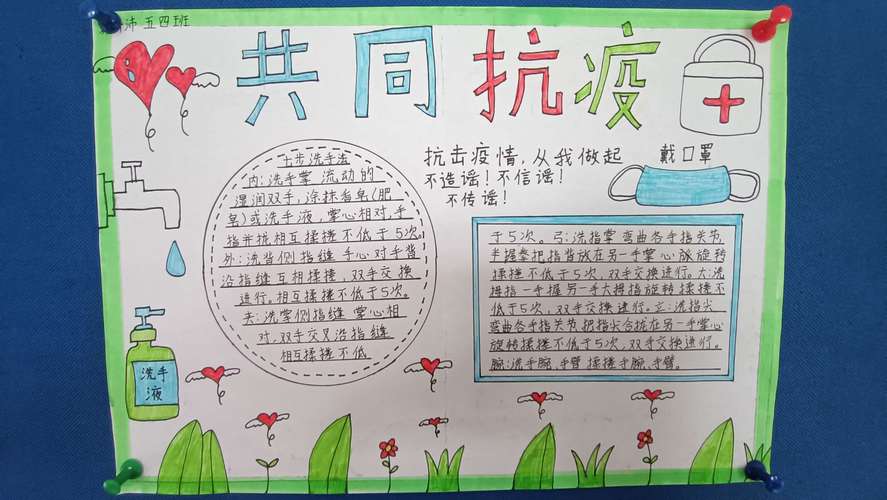 沛 五四班
共同抗疫
七步洗手法
内:洗手掌 流动的
湿润双手,涂抹香皂(肥
皂)或洗手液,掌心相对,手
指并拢相互揉搓不低于5次。
外:洗背侧指缝 手心对手背
沿指缝互相揉搓,双手交换
进行。相互揉搓不低于5次。
夹:洗掌侧指缝 掌心相
对,双手交叉沿指缝
相互揉搓不低
抗击疫情,从我做起
不造谣!不信谣!
不传谣!
戴口罩
于5次。弓:洗指掌 弯曲各手指关节,
半握拳把指背放在另一手掌心旋旋转
揉搓不低于5次,双手交换进行。大:洗
拇指 一手握另一手大拇指旋转揉搓不
低于5次,双手交换进行。立:洗指尖
弯曲各手指关节,把指尖合拢在另一手掌心
旋转揉搓不低于5次,双手交换进行。
腕:洗手腕、手臂 揉搓手腕、手臂。
洗手
液